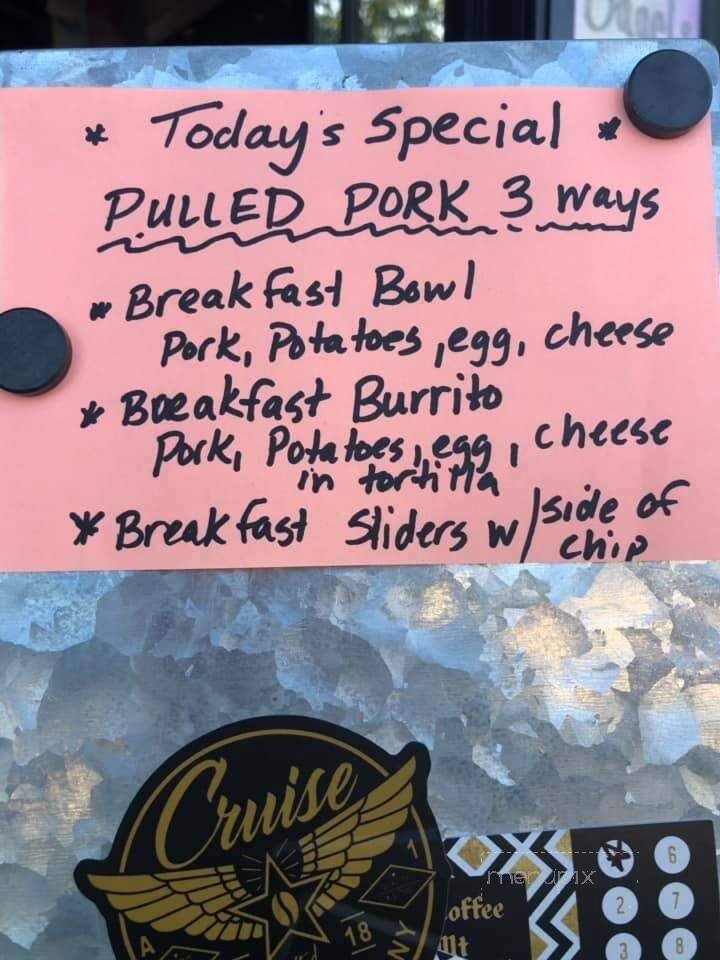 * Today's Special *
PULLED PORK 3 ways
* Breakfast Bowl
Pork, Potatoes, egg, cheese
* Breakfast Burrito
Pork, Potatoes, egg, cheese
in tortilla
* Breakfast Sliders w/ side of
chip
Cruise
18
1
A
NY
offee
Mt
6
2 7
3 8
menupix